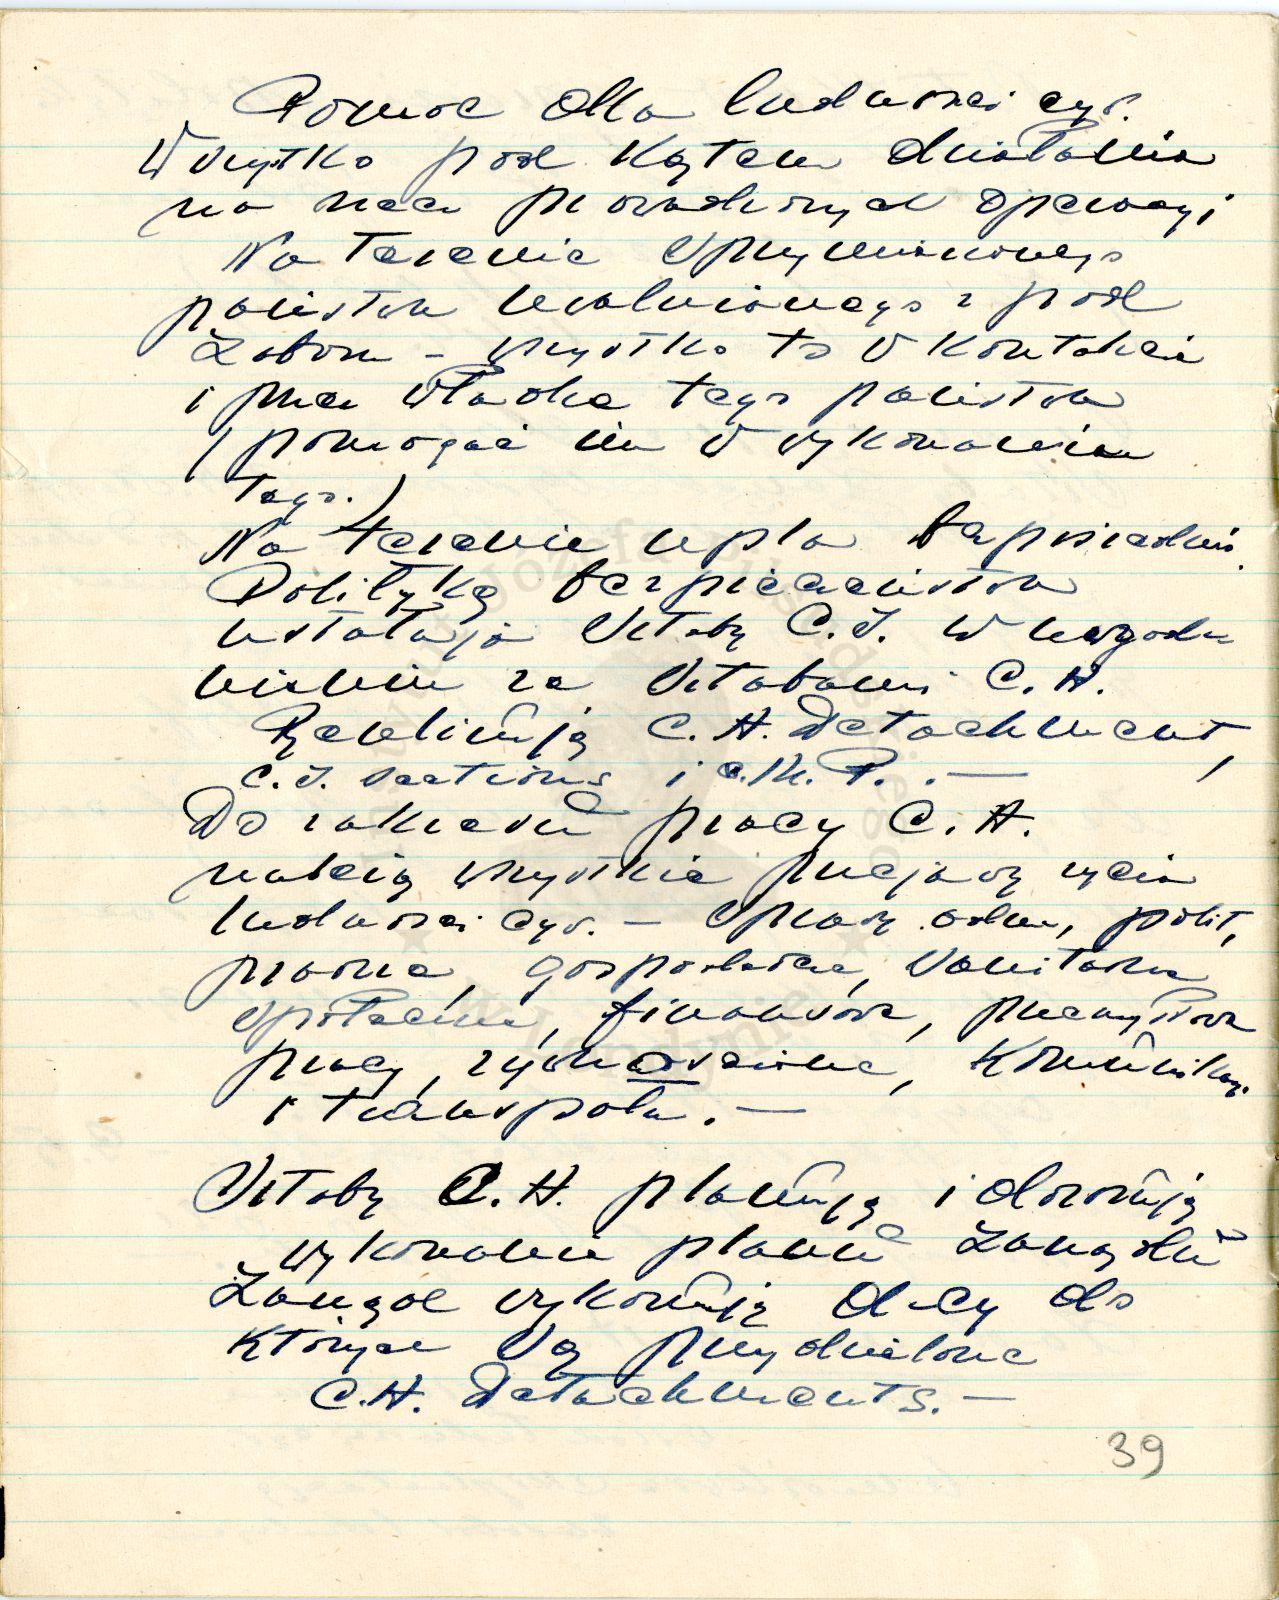 Pomoc dla ludności cyw.
Wszystko pod kątem działania
na rzecz prowadzonych operacyj
Na terenie sprzymierzonego
państwa uwolnionego z pod
zaboru – wszystko to w kontakcie
i przez władze tego państwa
(pomagać im w wykonaniu
tego.)
Na terenie npla bezpośrednio.
Politykę bezpieczeństwa
ustalają Sztaby C.I. w uzgod-
nieniu ze Sztabami C.A.
Realizują C.A. Detachment,
C.I. Sections i C.M.P. . —
Do zakresu pracy C.A.
należą wszystkie przejawy życia
ludności cyw. – sprawy adm, polit,
prawne, gospodarcze, sanitarne
społeczne, finansowe, przemysłowe
pracy, żywnościowe, komunikacyj.
i transportu. —
Sztaby C.A. planują i dozorują
wykonanie planu zarządu
Zarząd wykonują d-cy do
których są przydzielone
C.A. Detachments. —
39
Józefa Piłsudskiego
w Londynie